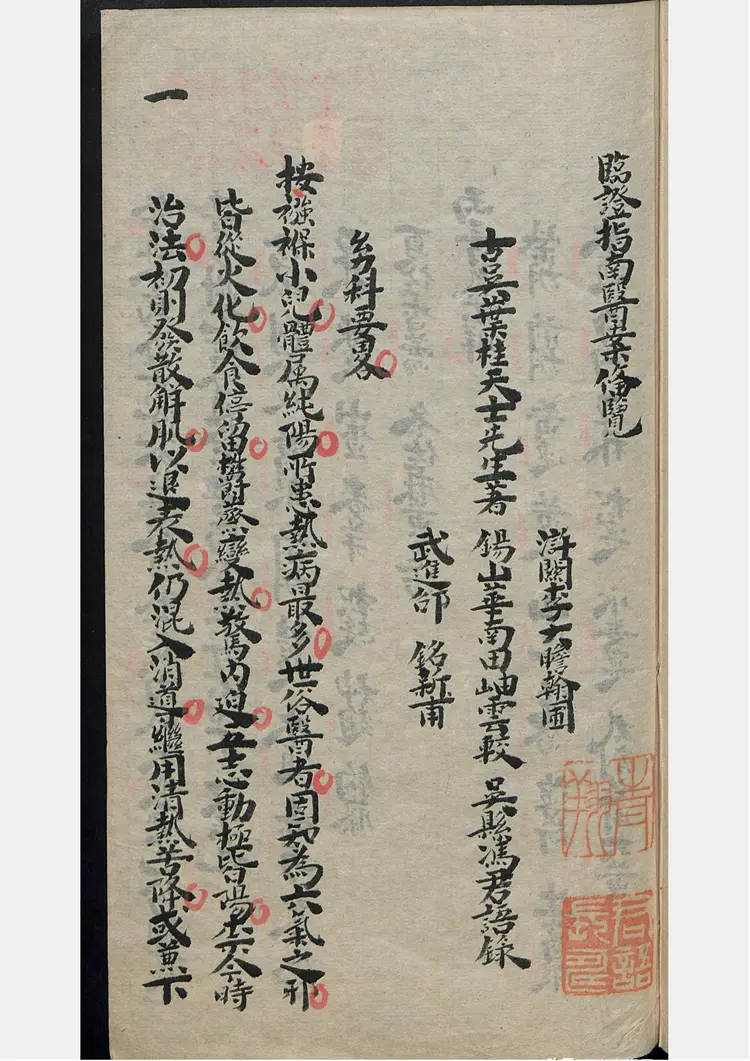 臨證指南醫案偹覽
滸關李大瞻翰圃
古吳葉桂天士先生著 錫山華南田岫雲較 吳縣馮君語錄
武進邵銘新甫
幼科要畧
按襁褓小兒體属純陽所患熱病最多世俗醫者固知為六氣之邪
皆從火化飲食停留欝蒸變熱驚內迫五志動極皆陽奈今時
治法初則發散解肌以退表熱仍混入消導繼用清熱苦降或兼下
一
君語